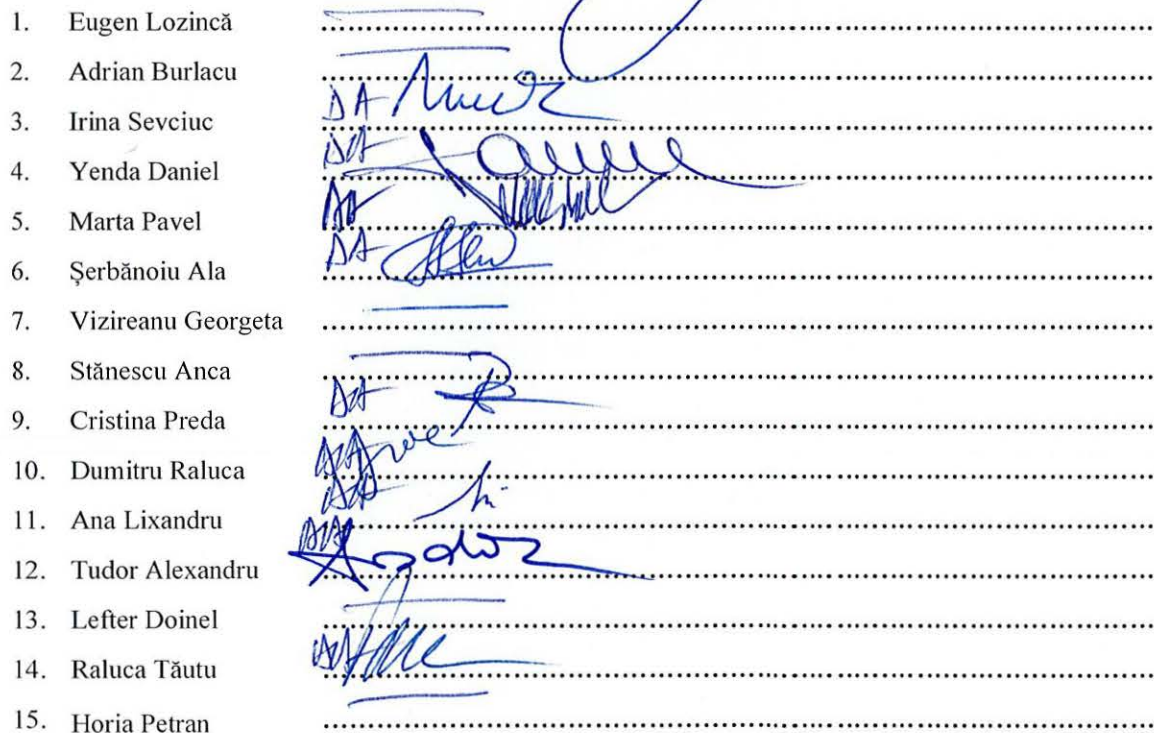 1. Eugen Lozincă ....................
2. Adrian Burlacu ....................
3. Irina Sevciuc DA ....................
4. Yenda Daniel DA ....................
5. Marta Pavel DA ....................
6. Șerbănoiu Ala DA ....................
7. Vizireanu Georgeta ....................
8. Stănescu Anca ....................
9. Cristina Preda DA ....................
10. Dumitru Raluca DA ....................
11. Ana Lixandru DA ....................
12. Tudor Alexandru DA ....................
13. Lefter Doinel ....................
14. Raluca Tăutu DA ....................
15. Horia Petran ....................